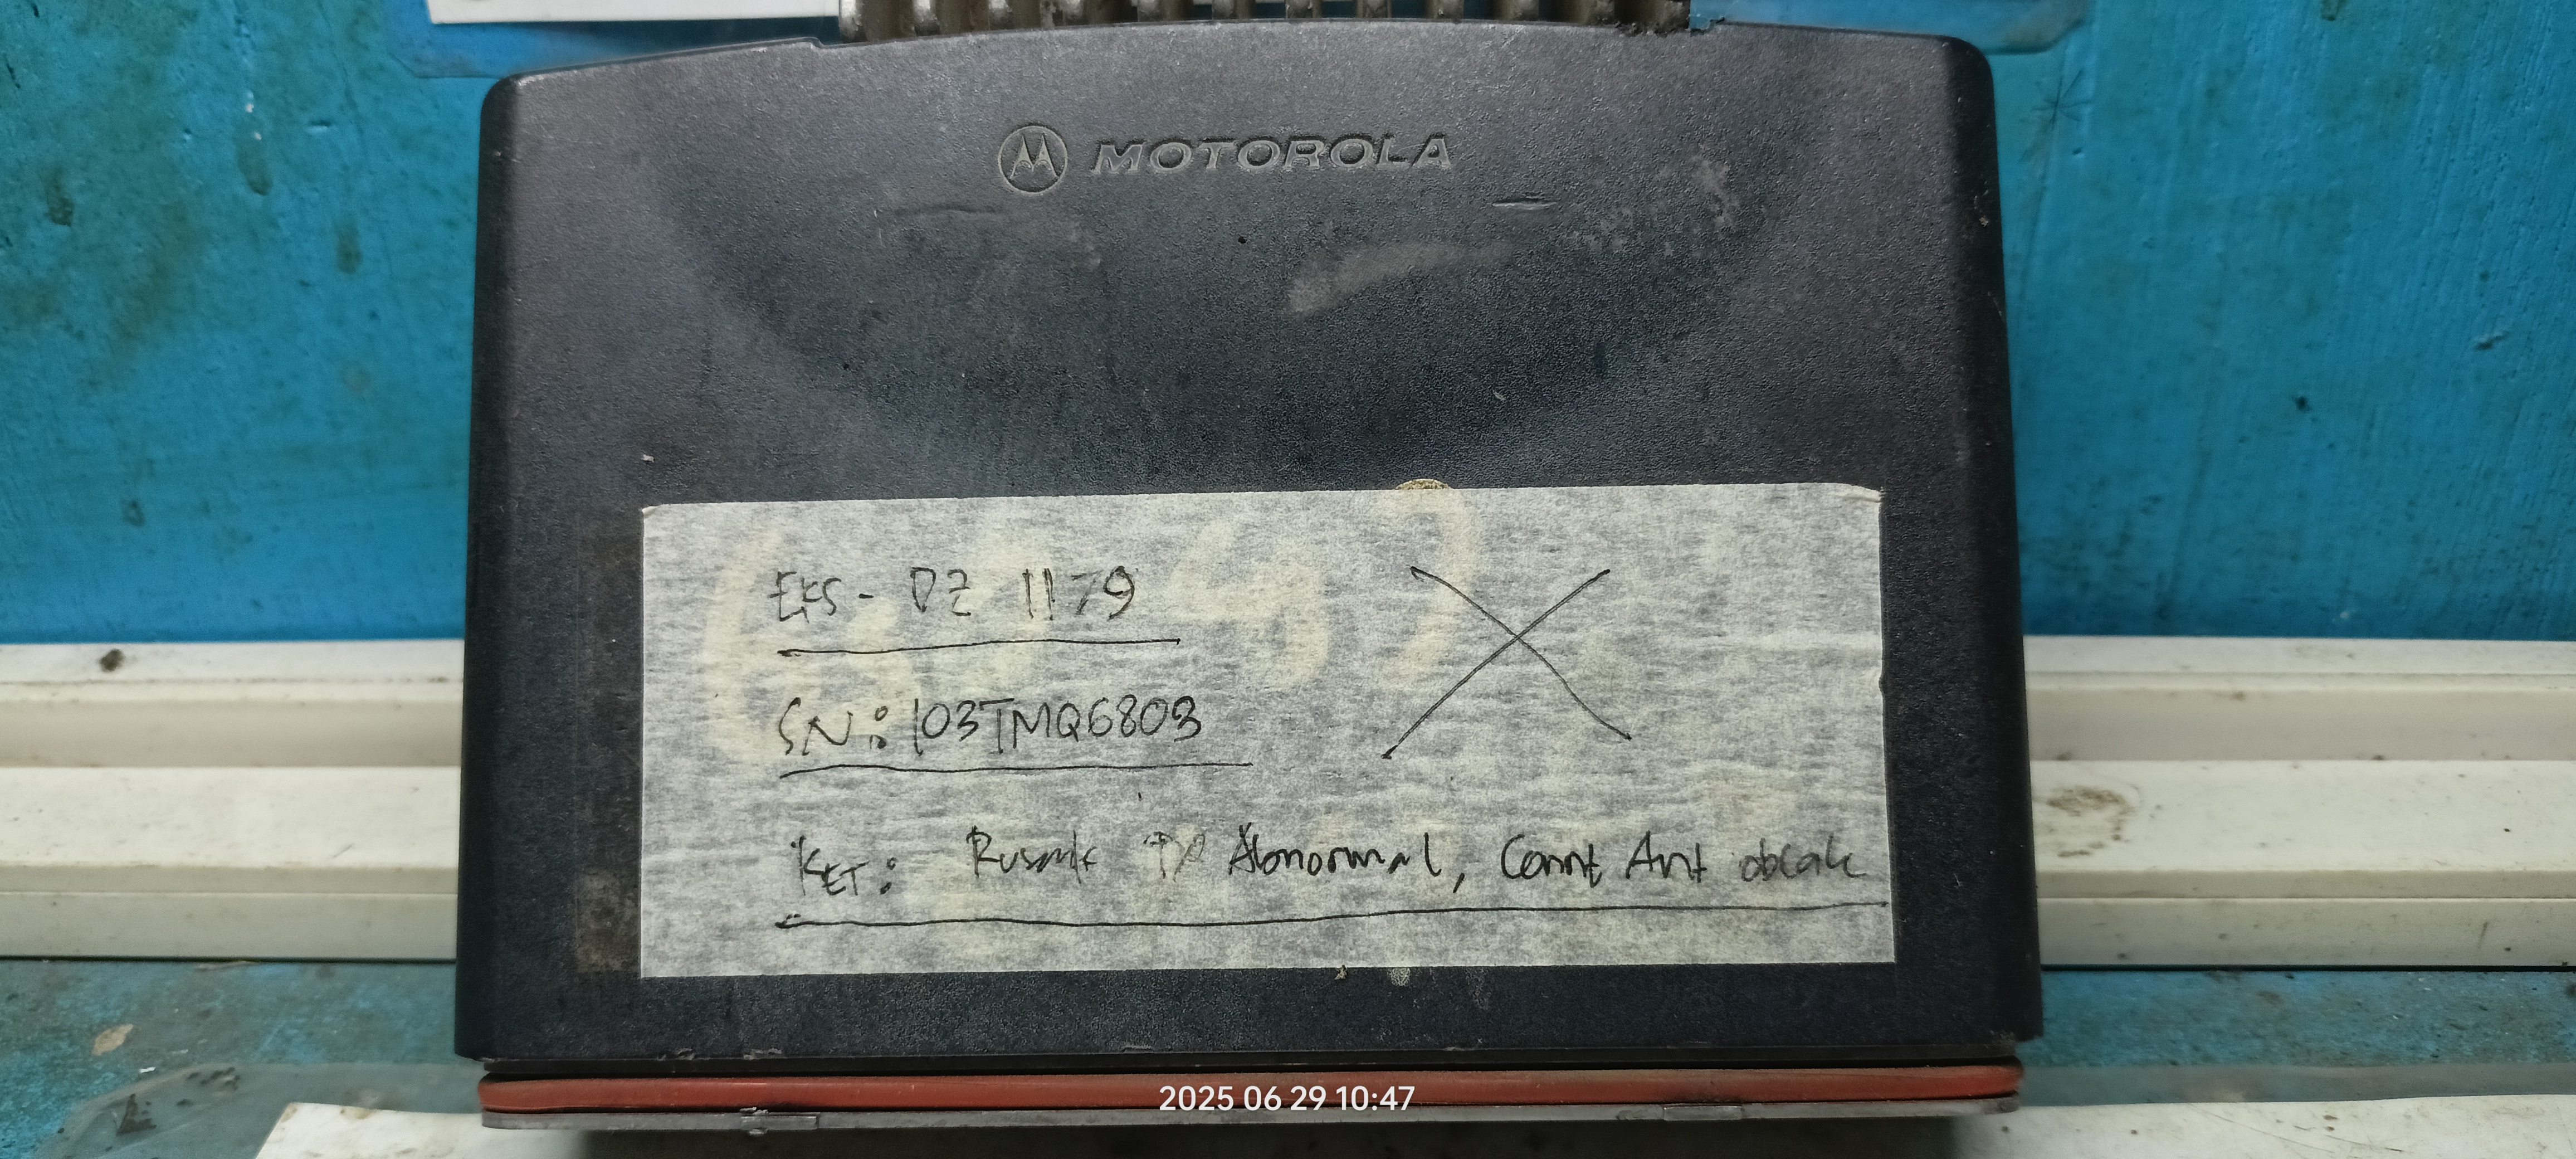 MOTOROLA
EKS - DZ 1179
SN: 103TMQ6803
KET: Rusak TX Abnormal, Connt Ant oblak
2025 06 29 10:47